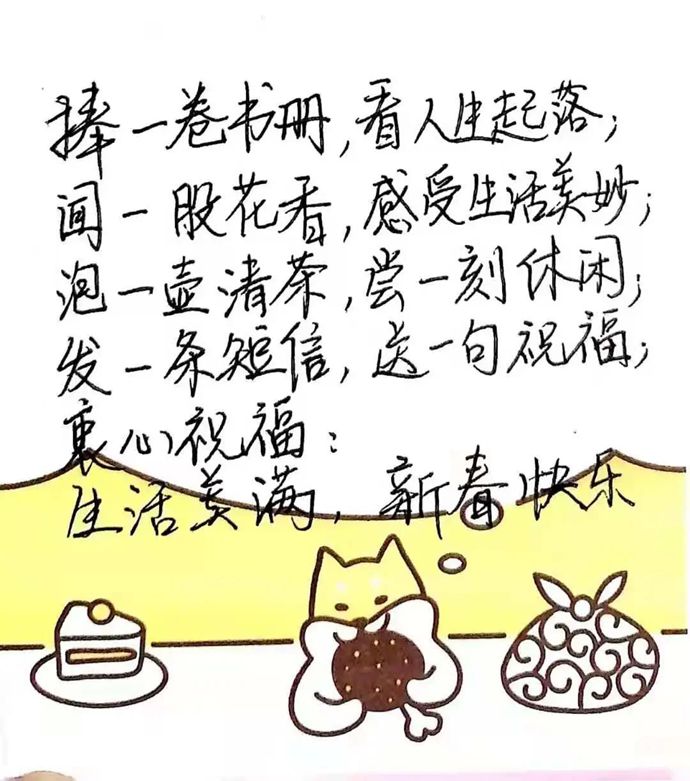 捧一卷书册，看人生起落；
闻一股花香，感受生活美妙；
泡一壶清茶，尝一刻休闲；
发一条短信，送一句祝福；
衷心祝福：
生活美满，新春快乐